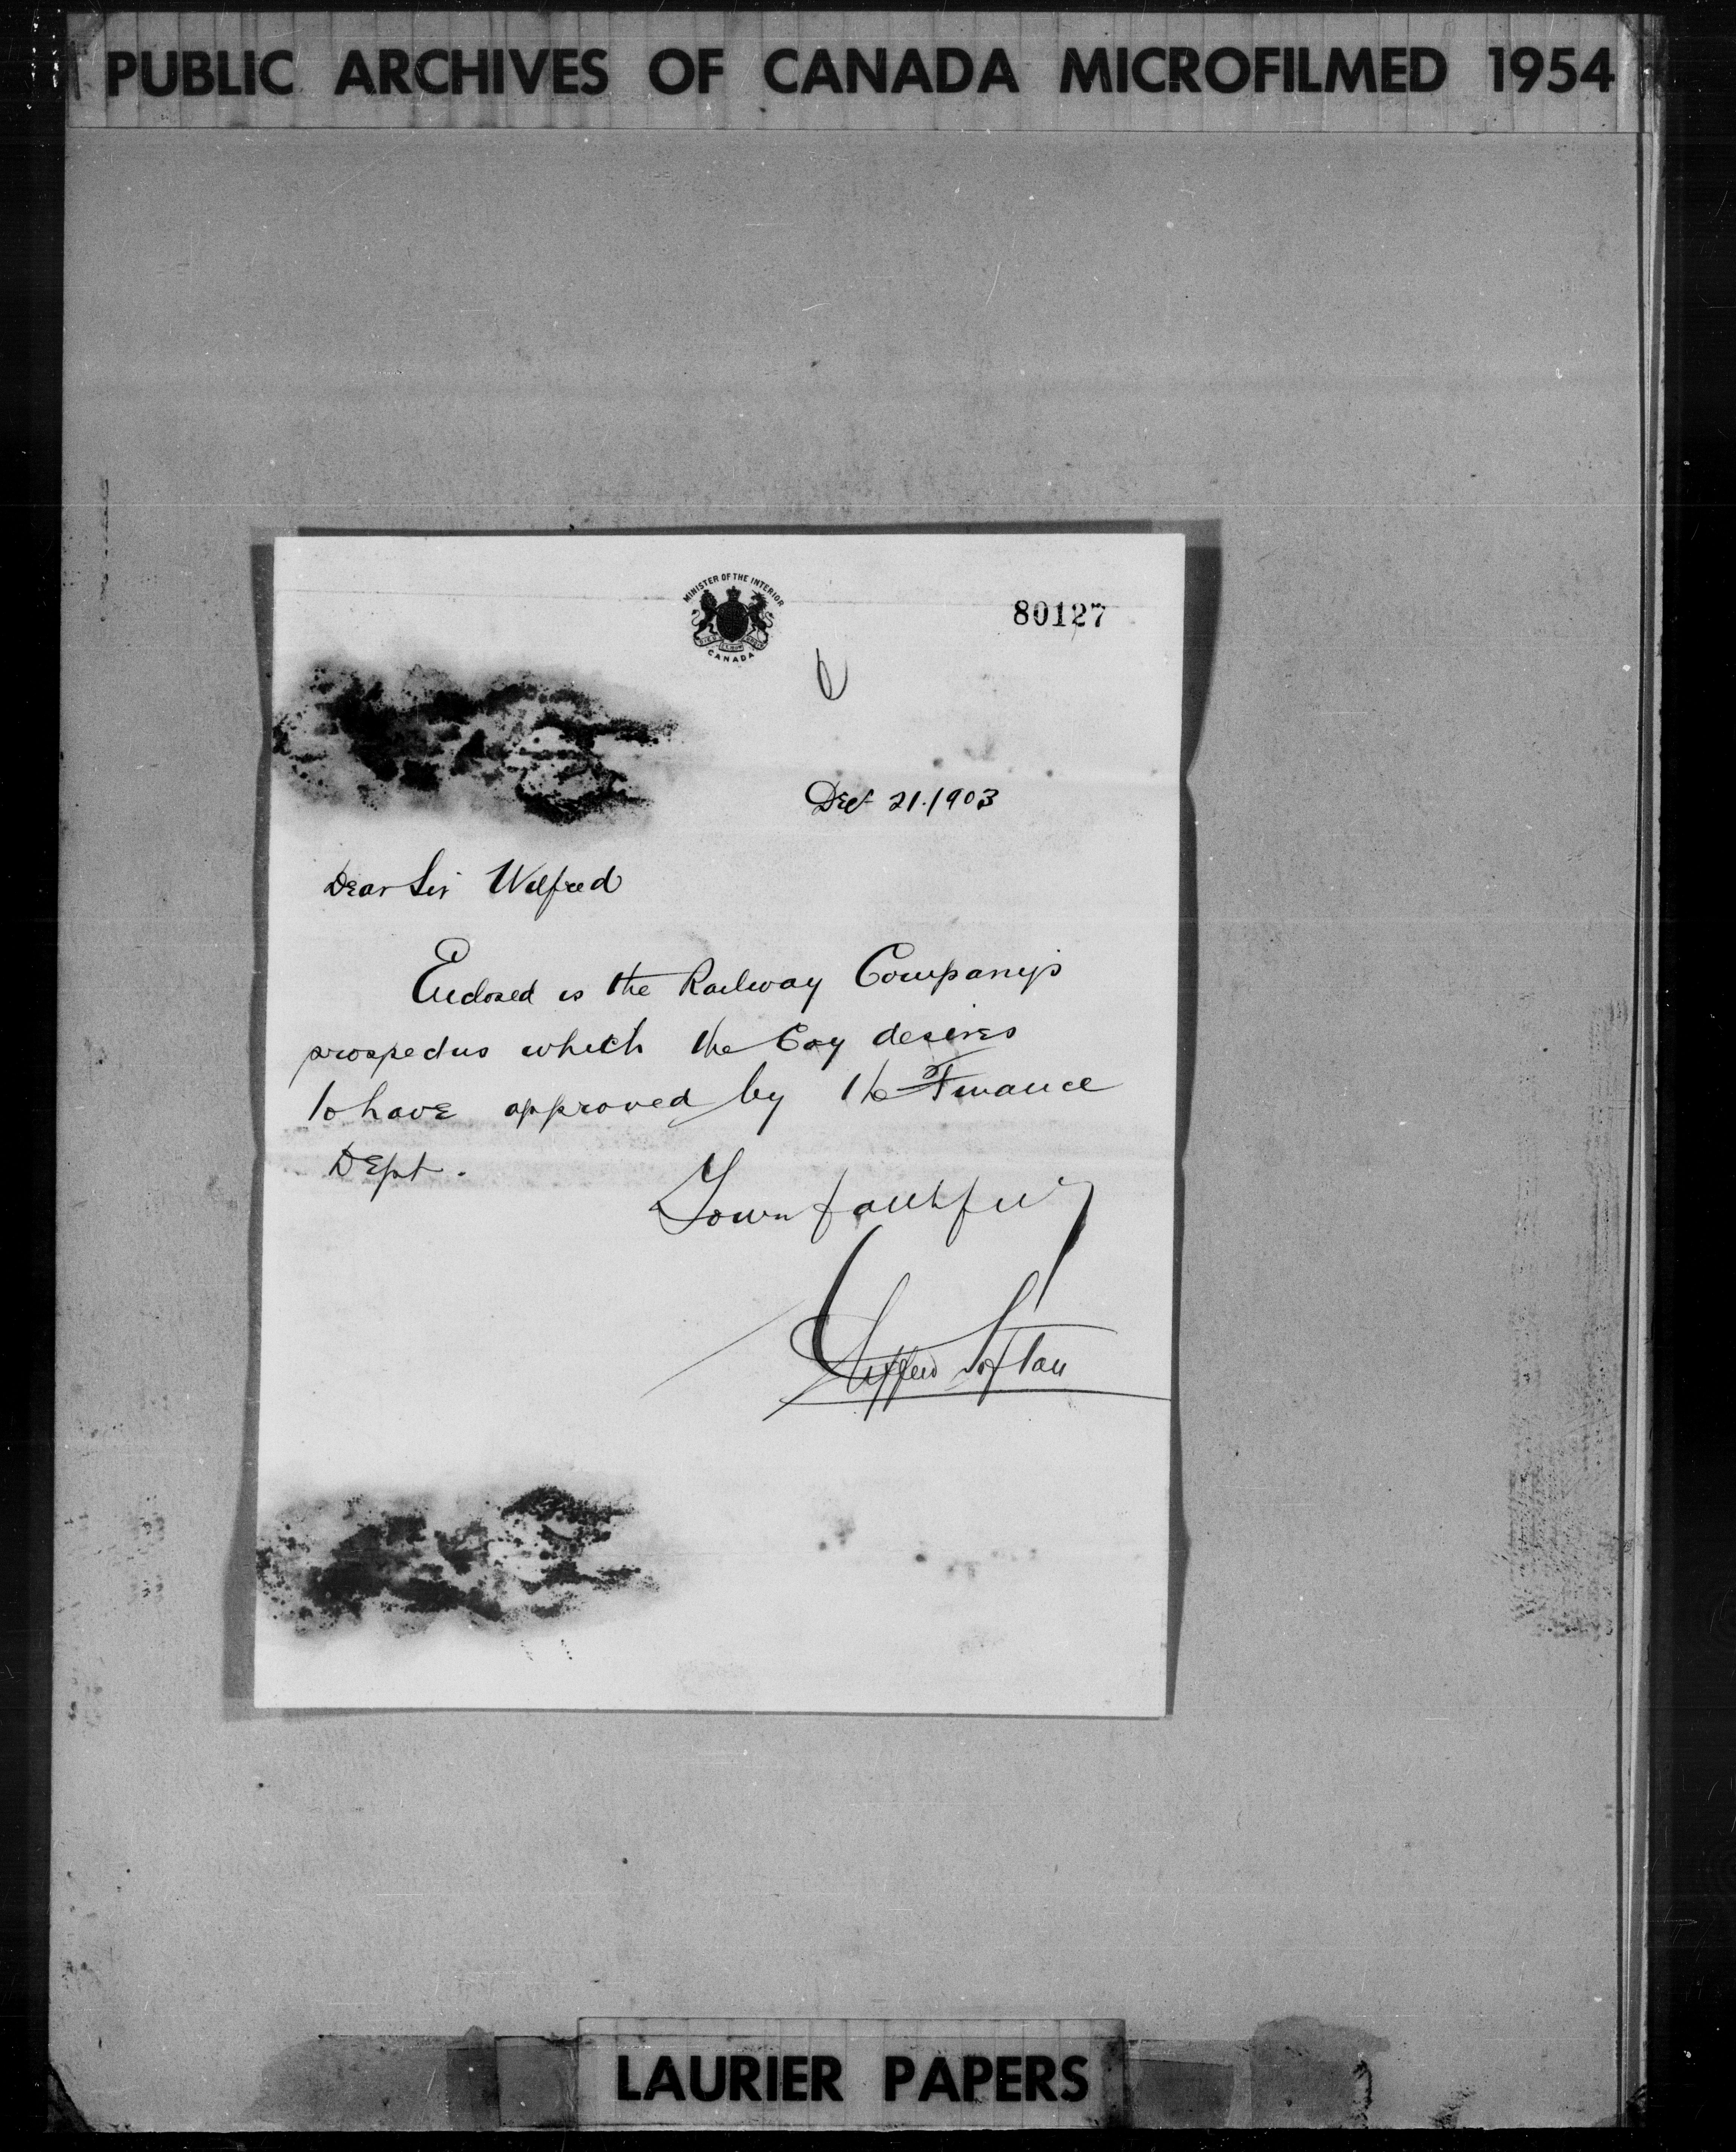 PUBLIC ARCHIVES OF CANADA MICROFILMED 1954
MINISTER OF THE INTERIOR
CANADA
80127
Dec 21.1903
Dear Sir Wilfred
Enclosed is the Railway Company's
prospectus which the Coy desires
to have approved by the Finance
Dept.
Yours faithfully
Clifford Sifton
LAURIER PAPERS